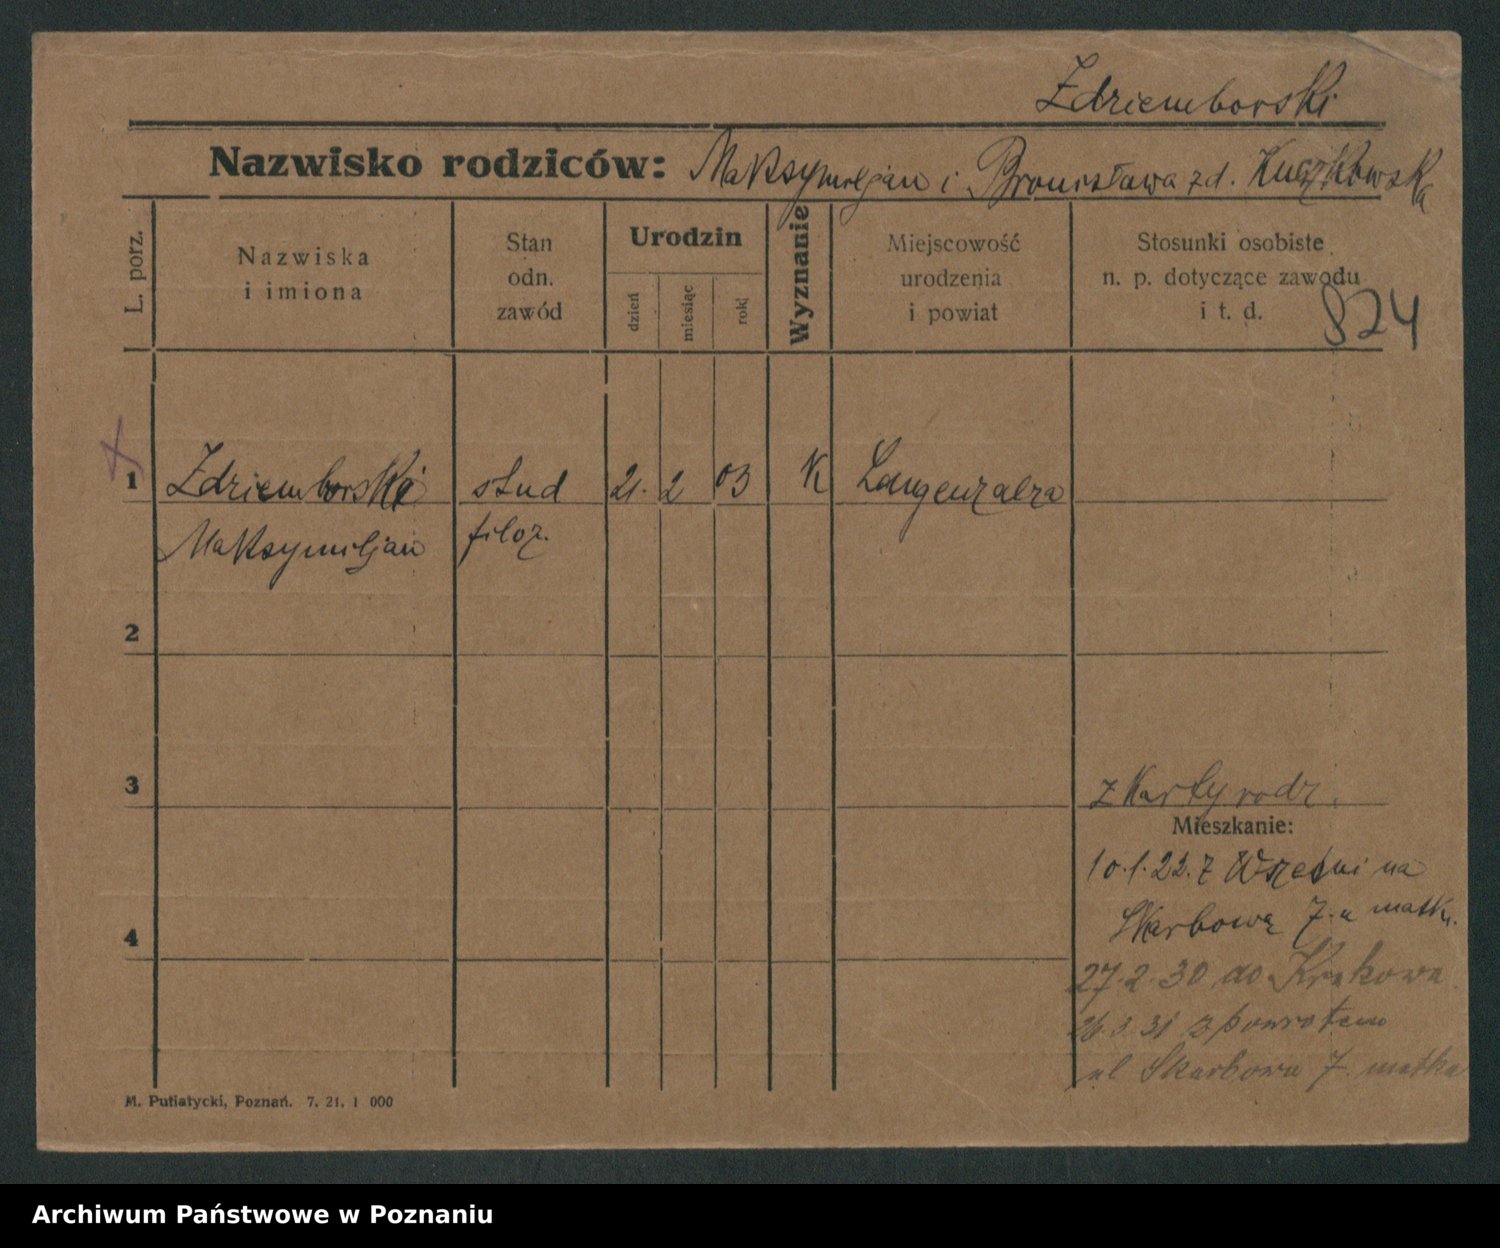 Zdziemborski
Nazwisko rodziców: Maksymiljan i Bronisława zd. Kuczkowska
L. porz.
Nazwiska
i imiona
Stan
odn.
zawód
Urodzin
dzień
miesiąc
rok
Wyznanie
Miejscowość
urodzenia
i powiat
Stosunki osobiste
n. p. dotyczące zawodu
i t. d.
824
1 Zdziemborski stud 21. 2 03 K Langenzalza
Maksymiljan filoz.
2
3
z Karty rodz.
Mieszkanie:
10.1.22. z Wrześni na
Skarbową 7. u matki.
4
27.2.30 do Krakowa
26.3.31 z powrotem
ul Skarbowa 7. matka
M. Putiatycki, Poznań. 7. 21. 1 000
Archiwum Państwowe w Poznaniu